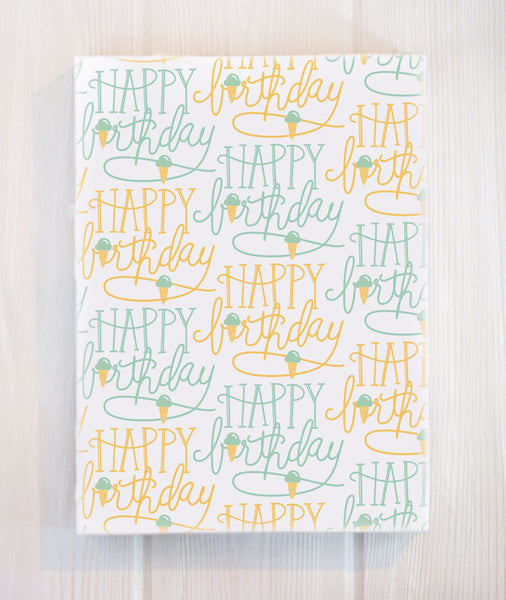 HAPPY
birthday
HAPPY
birthday
HAPPY
birthday
HAPPY
birthday
birthday
HAPPY
birthday
HAPPY
birthday
HAPPY
birthday
HAPPY
HAPP
birth
HAPP
birth
HAPP
birth
HAPP